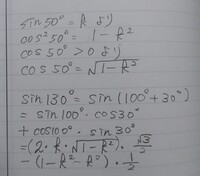 sin50° = k より
cos²50° = 1 - k²
cos50° > 0 より
cos50° = √1-k²
sin130° = sin(100°+30°)
= sin100°・cos30°
+ cos100°・sin30°
= (2・k・√1-k²)・√3/2
- (1-k²-k²)・1/2